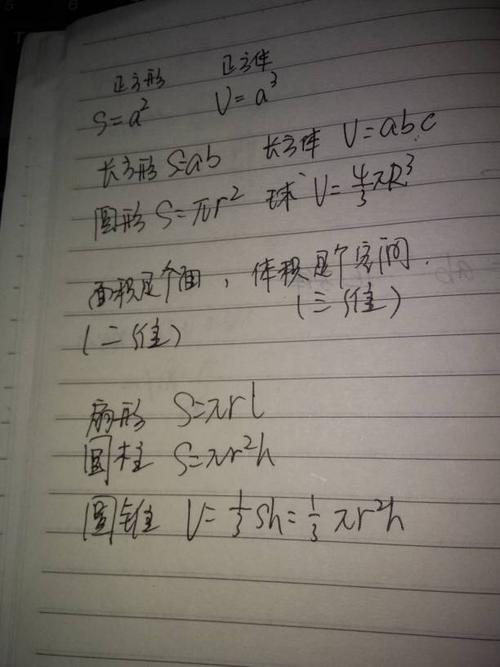 正方形 正方体
S=a² V=a³
长方形 S=ab 长方体 V=abc
圆形 S=πr² 球 V=4/3πR³
面积是个面，体积是个空间.
(二维) (三维)
扇形 S=πrl
圆柱 S=πr²h
圆锥 V=1/3Sh=1/3πr²h